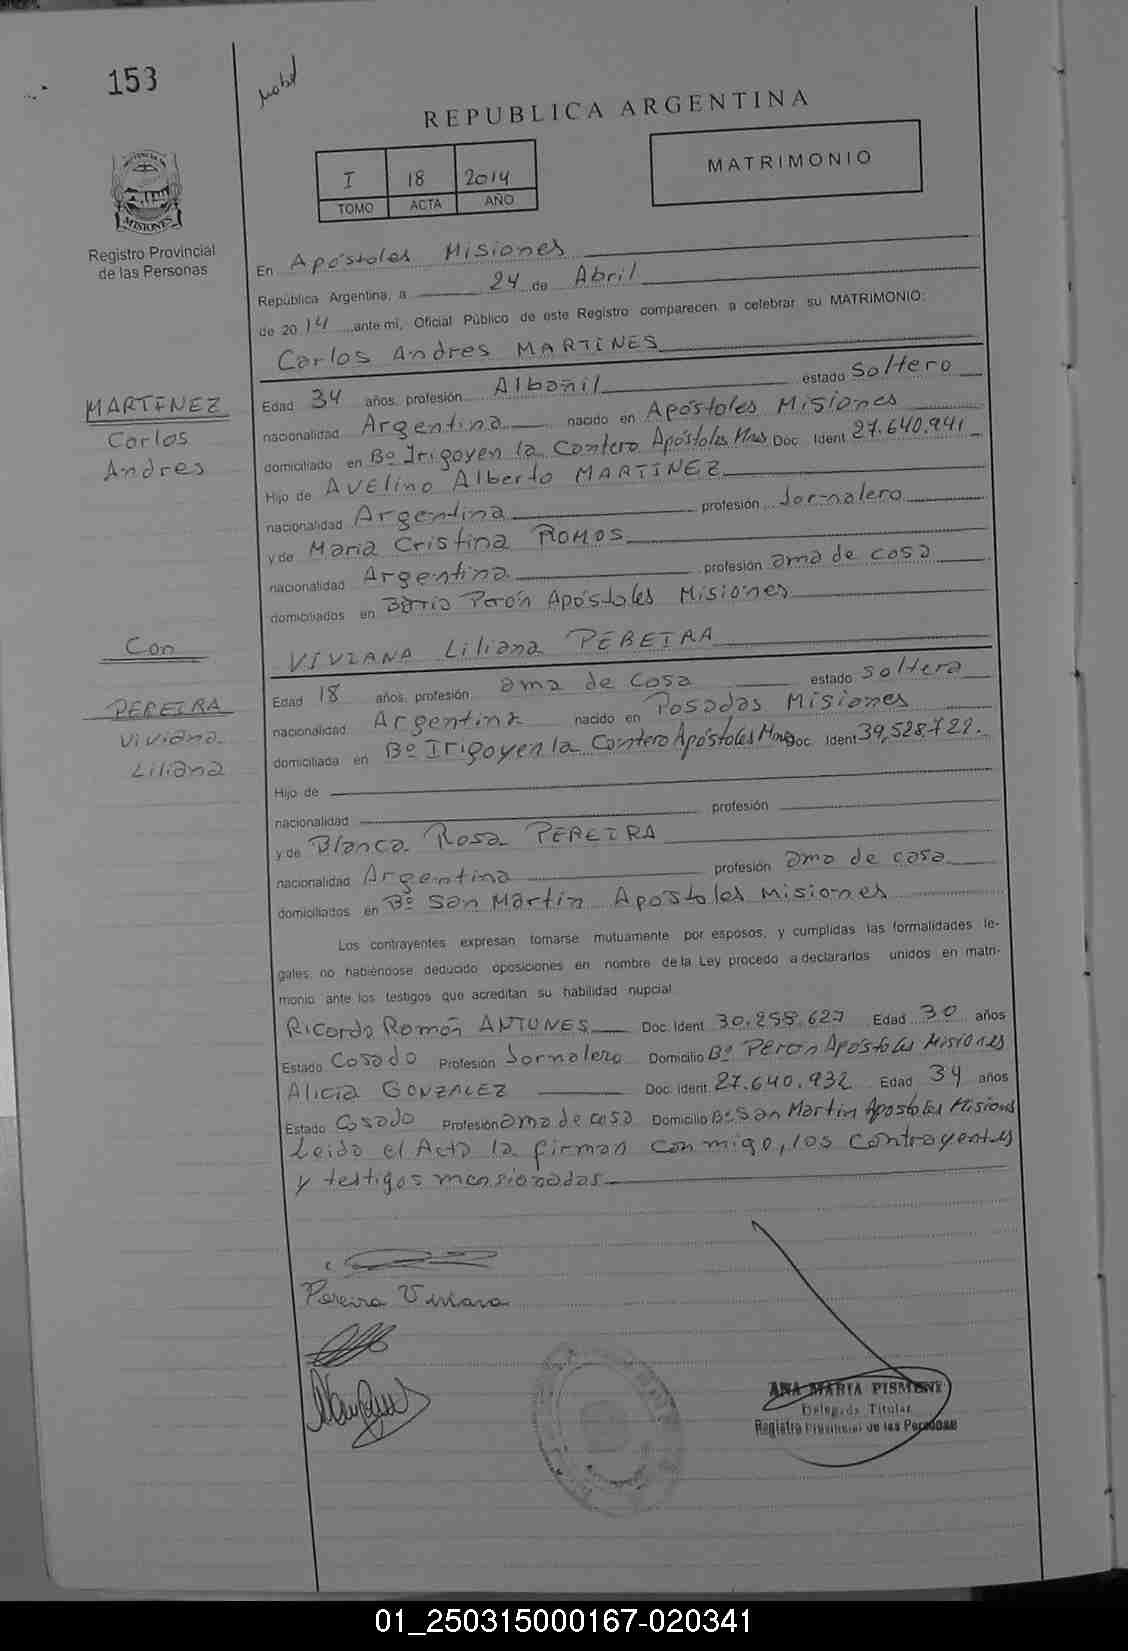 153
REPUBLICA ARGENTINA
I 18 2014
TOMO ACTA AÑO
MATRIMONIO
PROVINCIA DE
MISIONES
Registro Provincial
de las Personas
En Apóstoles Misiones
República Argentina, a 24 de Abril
de 2014 ante mí, Oficial Público de este Registro comparecen a celebrar su MATRIMONIO:
Carlos Andres MARTINES
MARTINEZ
Carlos
Andres
Edad 34 años, profesión Albañil estado Soltero
nacionalidad Argentina nacido en Apóstoles Misiones
domiciliado en Bº Irigoyen la Contera Apóstoles Mnes Doc. Ident. 27.640.941
Hijo de Avelino Alberto MARTINEZ
nacionalidad Argentina profesión Jornalero
y de Maria Cristina ROMOS
nacionalidad Argentina profesión ama de casa
domiciliados en Barrio Perón Apóstoles Misiones
Con
VIVIANA Liliana PEREIRA
PEREIRA
Viviana
Liliana
Edad 18 años, profesión ama de casa estado soltera
nacionalidad Argentina nacido en Posadas Misiones
domiciliada en Bº Irigoyen la Contera Apóstoles Mnes Doc. Ident. 39.528.722.
Hijo de
nacionalidad profesión
y de Blanca Rosa PEREIRA
nacionalidad Argentina profesión ama de casa
domiciliados en Bº San Martin Apostoles Misiones
Los contrayentes expresan tomarse mutuamente por esposos, y cumplidas las formalidades le-
gales, no habiéndose deducido oposiciones en nombre de la Ley procedo a declararlos unidos en matri-
monio ante los testigos que acreditan su habilidad nupcial
Ricardo Ramón ANTUNES Doc. Ident. 30.255.627 Edad 30 años
Estado Casado Profesión Jornalero Domicilio Bº Peron Apóstoles Misiones
Alicia GONZALEZ Doc. ident. 27.640.932 Edad 34 años
Estado Casado Profesión ama de casa Domicilio Bº San Martin Apostoles Misiones
Leido el Acta la firman conmigo, los contrayentes
y testigos mensionados
Pereira Viviana
ANA MARIA PISMENE
Delegada Titular
Registro Provincial de las Personas
01_250315000167-020341